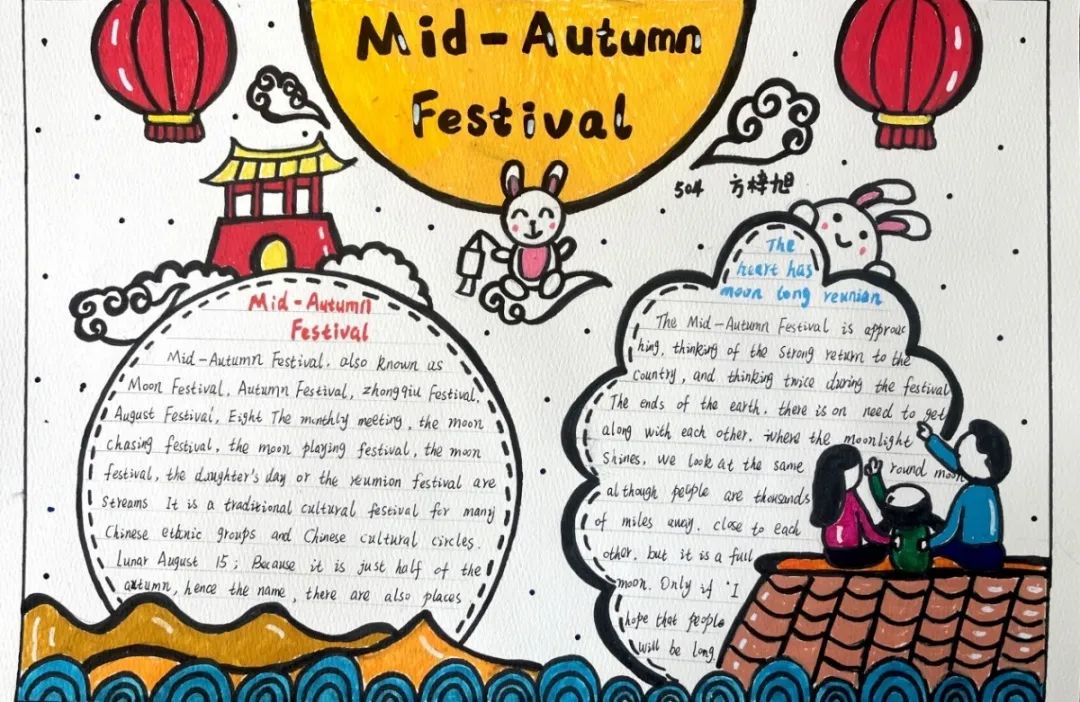 Mid-Autumn
Festival
504 方梓旭
Mid-Autumn
Festival
Mid-Autumn Festival, also known as
Moon Festival, Autumn Festival, zhongqiu Festival,
August Festival, Eight The monthly meeting, the moon
chasing festival, the moon playing festival, the moon
festival, the daughter's day or the reunion festival are
streams It is a traditional cultural festival for many
Chinese ethnic groups and Chinese cultural circles.
Lunar August 15; Because it is just half of the
autumn, hence the name, there are also places
The
heart has
moon long reunion
The Mid-Autumn Festival is approac
hing, thinking of the strong return to the
country, and thinking twice during the festival
The ends of the earth. there is on need to get
along with each other. where the moonlight
Shines, we look at the same round moon
although people are thousands
of miles away. close to each
other. but it is a full
moon. Only if "I
hope that people
will be long